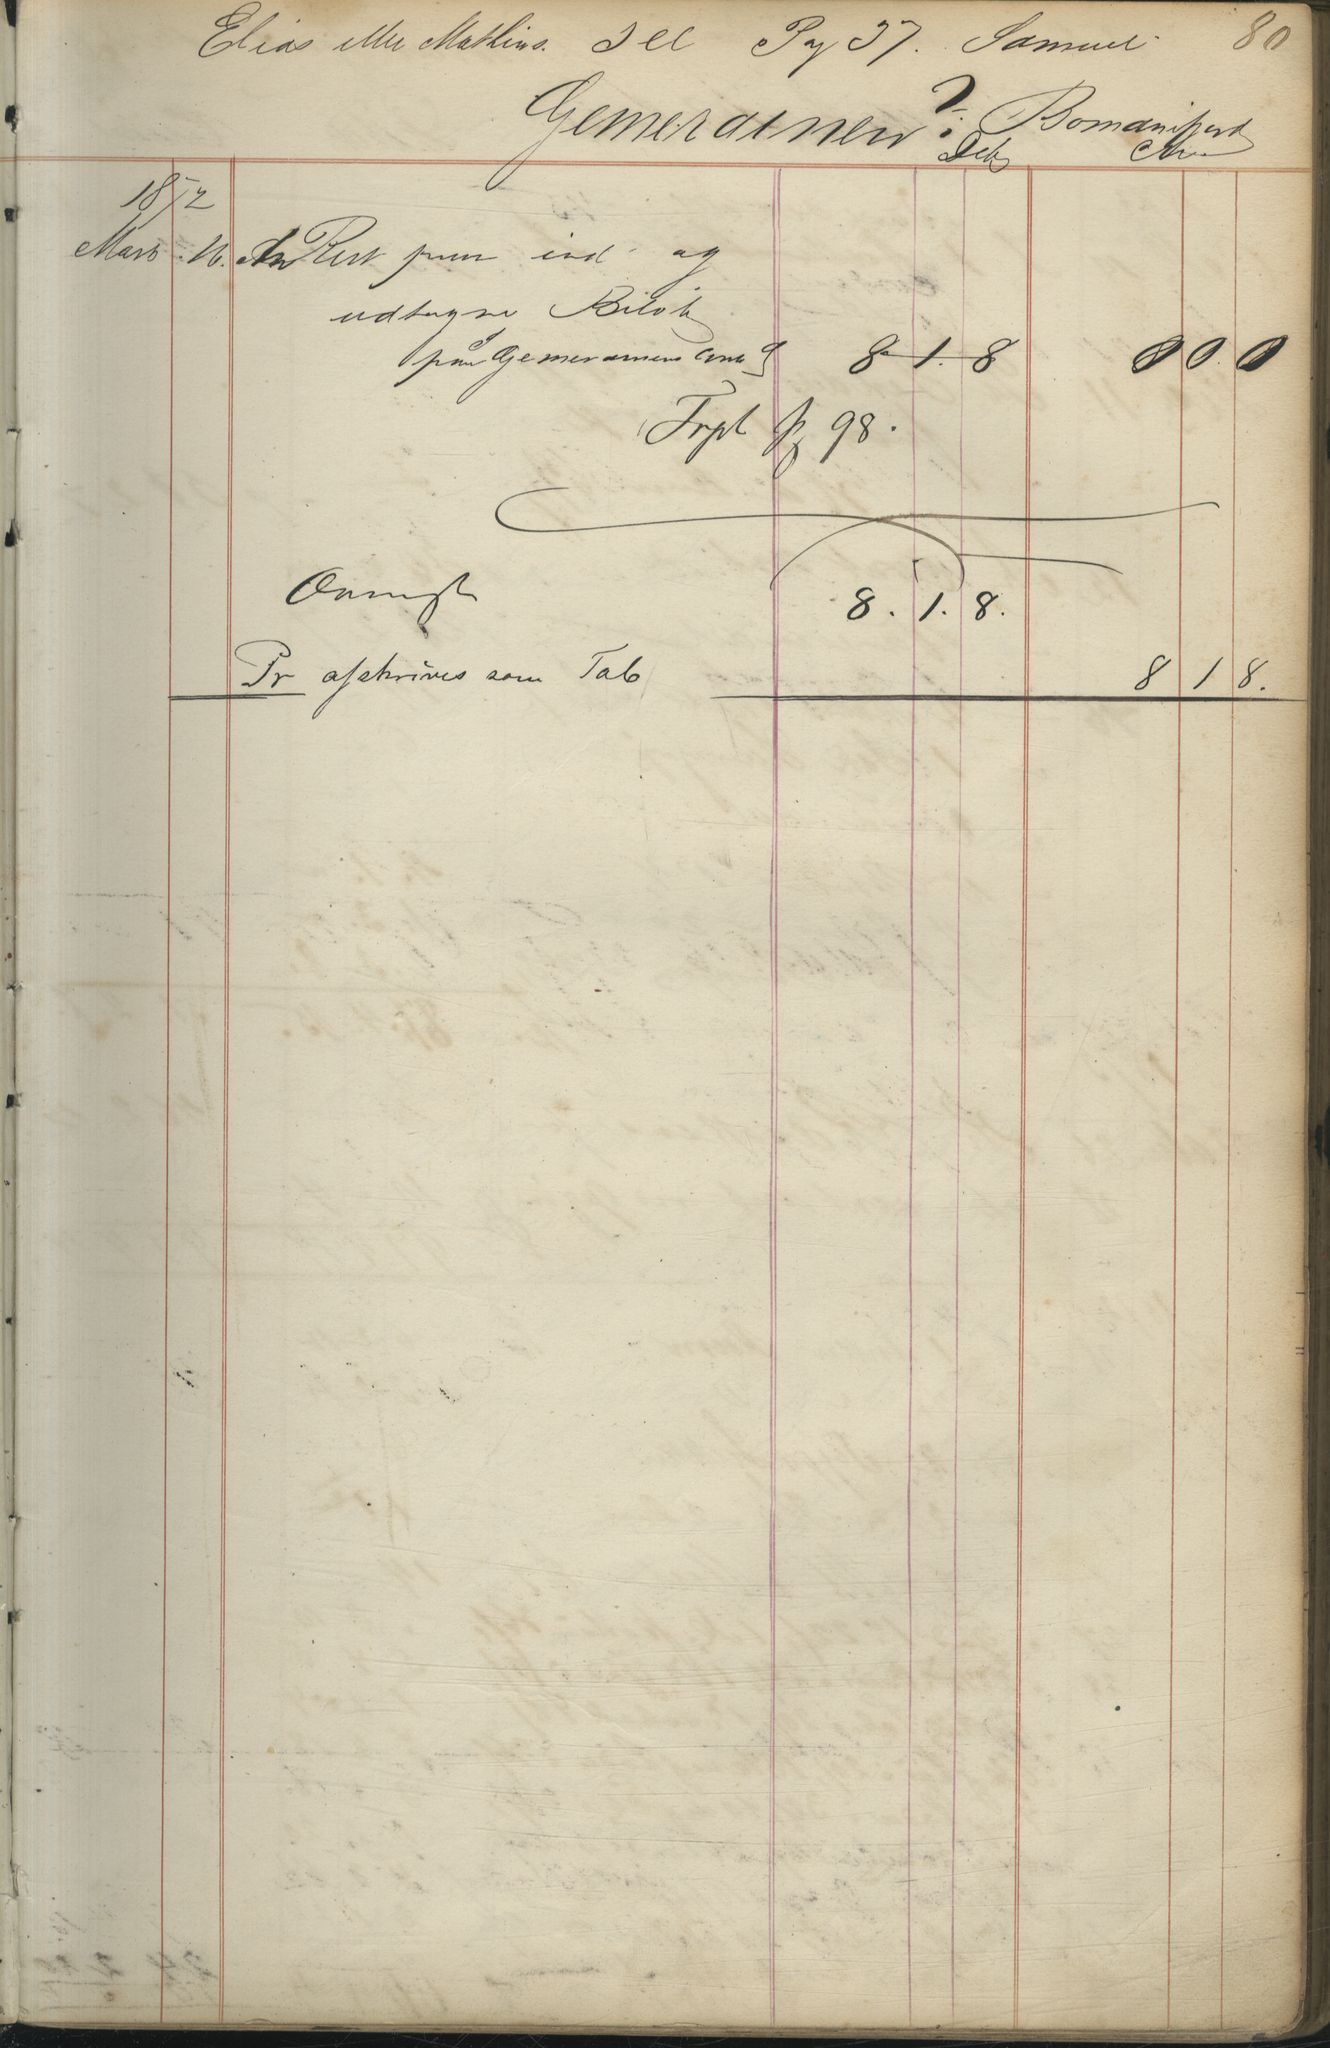 Elias eller Mathias. Pag 37. Samuel 80
Gemeraнen ? Bomanipart
Deb
1872
Mars 16. An Rest paa ind og
udtagne Beløb
paa Gemeramens Conto 8 1. 8 0 0. 0
Trpt pg 98.
8. 1. 8.
Pr afskrives som Tab 8 1 8.